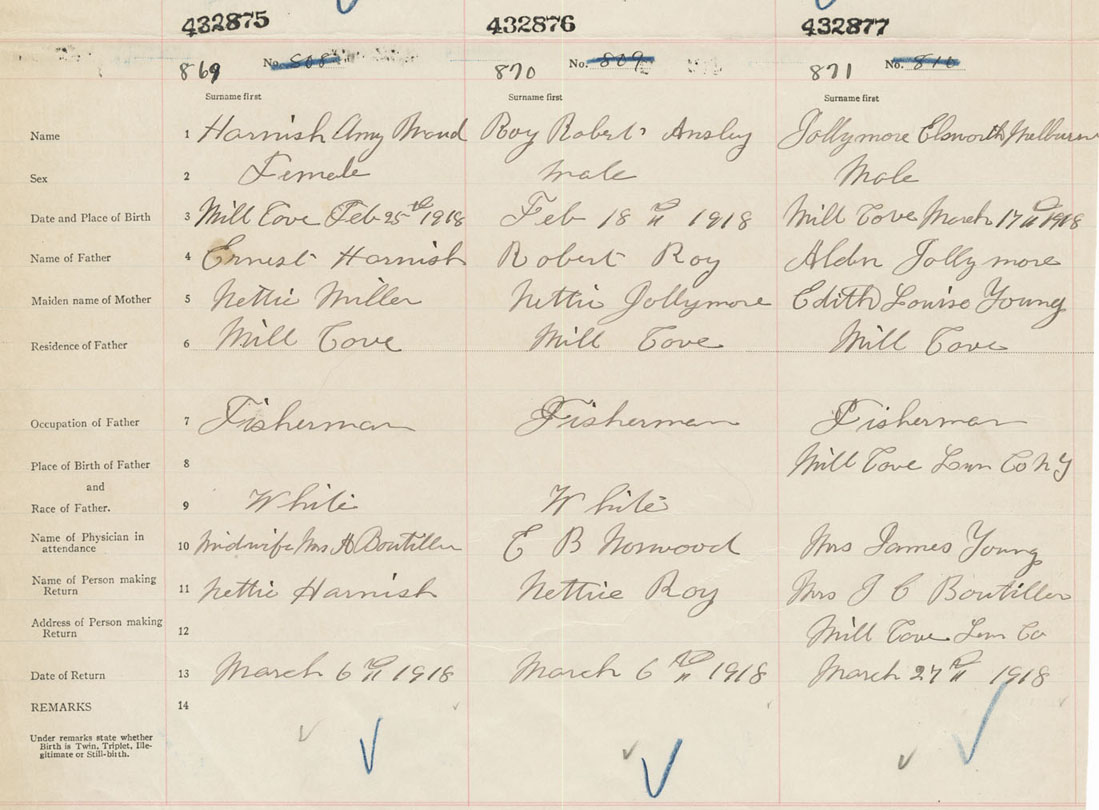 432875 432876 432877
869 No. 808 870 No. 809 871 No. 810
Surname first Surname first Surname first
Name 1 Harnish Amy Maud Roy Robert Ansley Jollymore Elsworth
Sex 2 Female Male Male
Date and Place of Birth 3 Mill Cove Feb 25th 1918 Feb 18th 1918 Mill Cove March 17th 1918
Name of Father 4 Ernest Harnish Robert Roy Alden Jollymore
Maiden name of Mother 5 Nettie Miller Nettie Jollymore Edith Louise Young
Residence of Father 6 Mill Cove Mill Cove Mill Cove
Occupation of Father 7 Fisherman Fisherman Fisherman
Place of Birth of Father 8 Mill Cove Lun Co
and
Race of Father. 9 White White
Name of Physician in
attendance 10 Midwife Mrs A Boutilier E B Norwood Mrs James Young
Name of Person making
Return 11 Nettie Harnish Nettie Roy Mrs J C Boutilier
Address of Person making
Return 12 Mill Cove Lun Co
Date of Return 13 March 6th 1918 March 6th 1918 March 27th 1918
REMARKS 14
Under remarks state whether
Birth is Twin, Triplet, Ille-
gitimate or Still-birth.